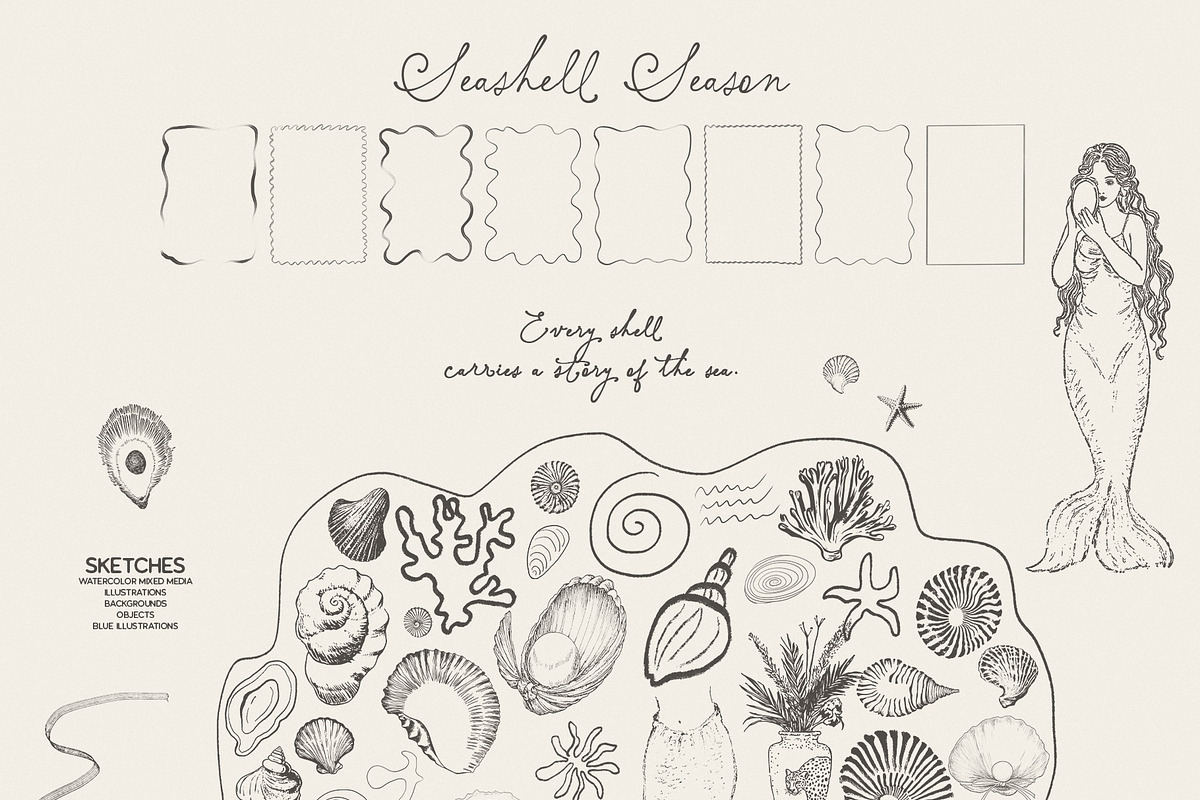 Seashell Season
Every shell
carries a story of the sea.
SKETCHES
WATERCOLOR MIXED MEDIA
ILLUSTRATIONS
BACKGROUNDS
OBJECTS
BLUE ILLUSTRATIONS